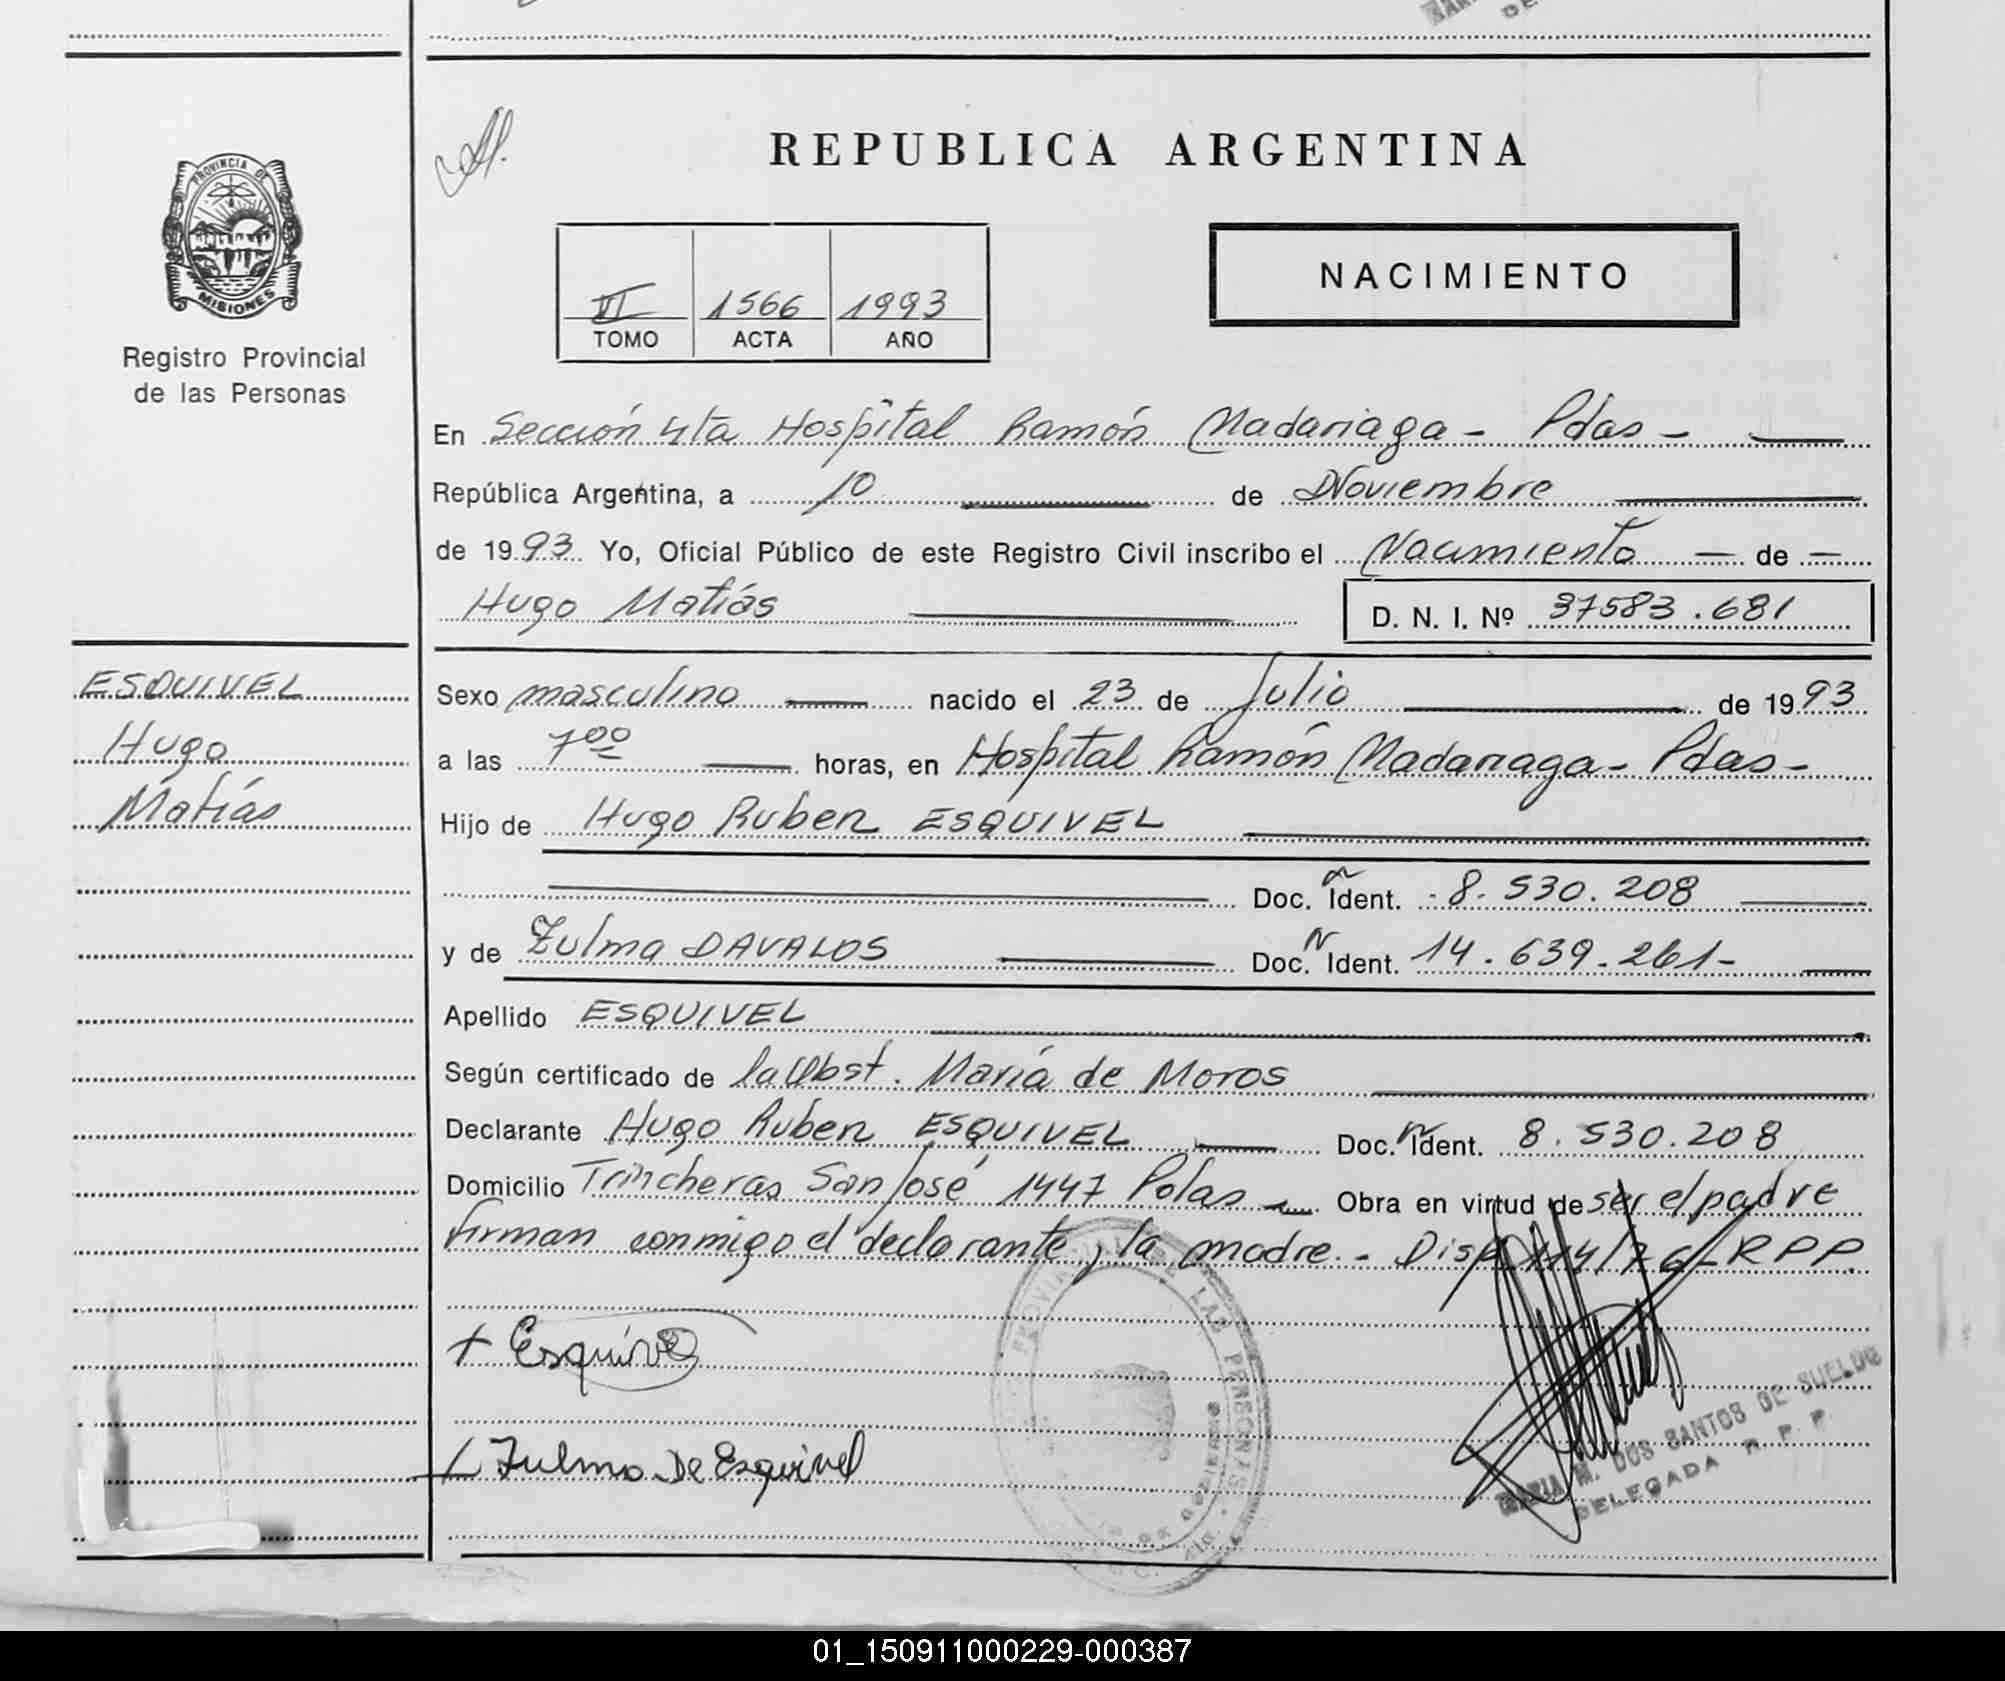 REPUBLICA ARGENTINA
PROVINCIA DE
MISIONES
Registro Provincial
de las Personas
NACIMIENTO
VI 1566 1993
TOMO ACTA AÑO
En Sección 4ta Hospital Ramón Madariaga - Pdas -
República Argentina, a 10 de Noviembre
de 1993 Yo, Oficial Público de este Registro Civil inscribo el Nacimiento de
Hugo Matiás D. N. I. Nº 37583.681
ESQUIVEL
Hugo
Matías
Sexo masculino nacido el 23 de Julio de 1993
a las 7 00 horas, en Hospital Ramón Madariaga - Pdas -
Hijo de Hugo Ruben ESQUIVEL
Doc. Ident. 8.530.208
y de Zulma DAVALOS Doc. N Ident. 14.639.261-
Apellido ESQUIVEL
Según certificado de la Obst. María de Moros
Declarante Hugo Ruben ESQUIVEL Doc. Ident. 8.530.208
Domicilio Trincheras San José 1447 Pdas Obra en virtud de ser el padre
firman conmigo el declarante y la madre. - Disp. 114/76 RPP.
+ Esquivel
Zulma De Esquivel
PROVINCIAL DE LAS PERSONAS
MARIA M. DOS SANTOS DE SUELDO
DELEGADA R. P. P.
01_150911000229-000387